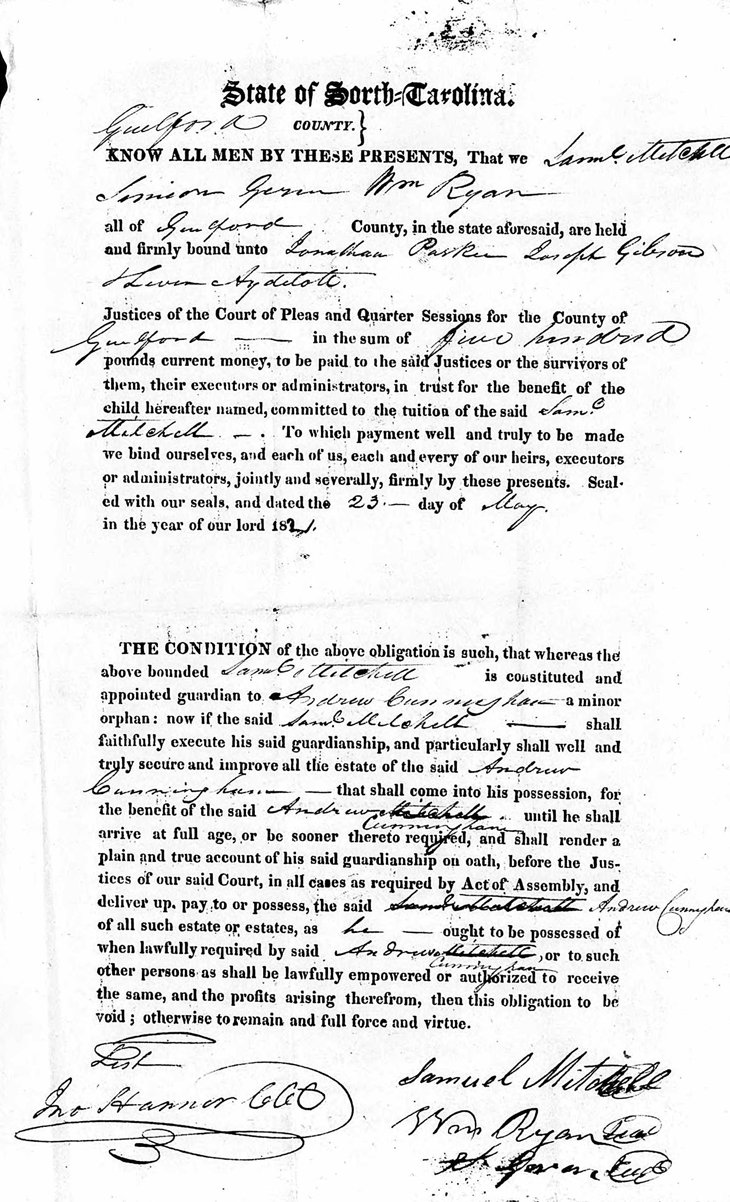 State of North-Carolina.
Guilford COUNTY. }
KNOW ALL MEN BY THESE PRESENTS, That we Saml. Mitchell
Simeon Geren Wm Ryan
all of Guilford County, in the state aforesaid, are held
and firmly bound unto Jonathan Parker Joseph Gibson
& Levin Aydelott.
Justices of the Court of Pleas and Quarter Sessions for the County of
Guilford — in the sum of five hundred
pounds current money, to be paid to the said Justices or the survivors of
them, their executors or administrators, in trust for the benefit of the
child hereafter named, committed to the tuition of the said Saml.
Mitchell — . To which payment well and truly to be made
we bind ourselves, and each of us, each and every of our heirs, executors
or administrators, jointly and severally, firmly by these presents. Seal-
ed with our seals, and dated the 23 — day of May.
in the year of our lord 1821.
THE CONDITION of the above obligation is such, that whereas the
above bounded Saml. Mitchell is constituted and
appointed guardian to Andrew Cunningham a minor
orphan: now if the said Saml. Mitchell — shall
faithfully execute his said guardianship, and particularly shall well and
truly secure and improve all the estate of the said Andrew
Cunningham — that shall come into his possession, for
the benefit of the said Andrew Mitchell until he shall
Cunningham
arrive at full age, or be sooner thereto required, and shall render a
plain and true account of his said guardianship on oath, before the Jus-
tices of our said Court, in all cases as required by Act of Assembly, and
deliver up, pay to or possess, the said Saml Mitchell Andrew Cunningham
of all such estate or estates, as he — ought to be possessed of
when lawfully required by said Andrew Mitchell, or to such
Cunningham
other persons as shall be lawfully empowered or authorized to receive
the same, and the profits arising therefrom, then this obligation to be
void; otherwise to remain and full force and virtue.
Test
Jno Hanner CCC
Samuel Mitchell
Wm Ryan Seal
S Geren Seal